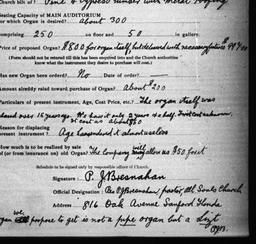 Church built of?
Seating Capacity of MAIN AUDITORIUM
or which Organ is desired? about 300
comprising 250 on floor and 50 in gallery.
Price of proposed Organ? $800 for organ itself, but delivered with
(Form should not be returned till this has been inquired into and the Church authorities
know what the instrument they desire to purchase will cost.)
Has new Organ been ordered? No Date of order?
Amount already raised toward purchase of Organ? about $200
Particulars of present instrument, Age, Cost, Price, etc.? The organ itself was
used over 15 years. We have it only 2 years
Reason for displacing
present instrument? Age has rendered it almost useless
How much is to be realized by sale
of (or from insurance on) old Organ? The Company will allow us $50 for it
Schedule to be signed only by responsible officer of Church.
Signature: P. J. Bresnahan
Official Designation: pastor, All Souls Church
Address: 816 Oak Avenue Sanford Florida
we propose to get is not a pipe organ but a